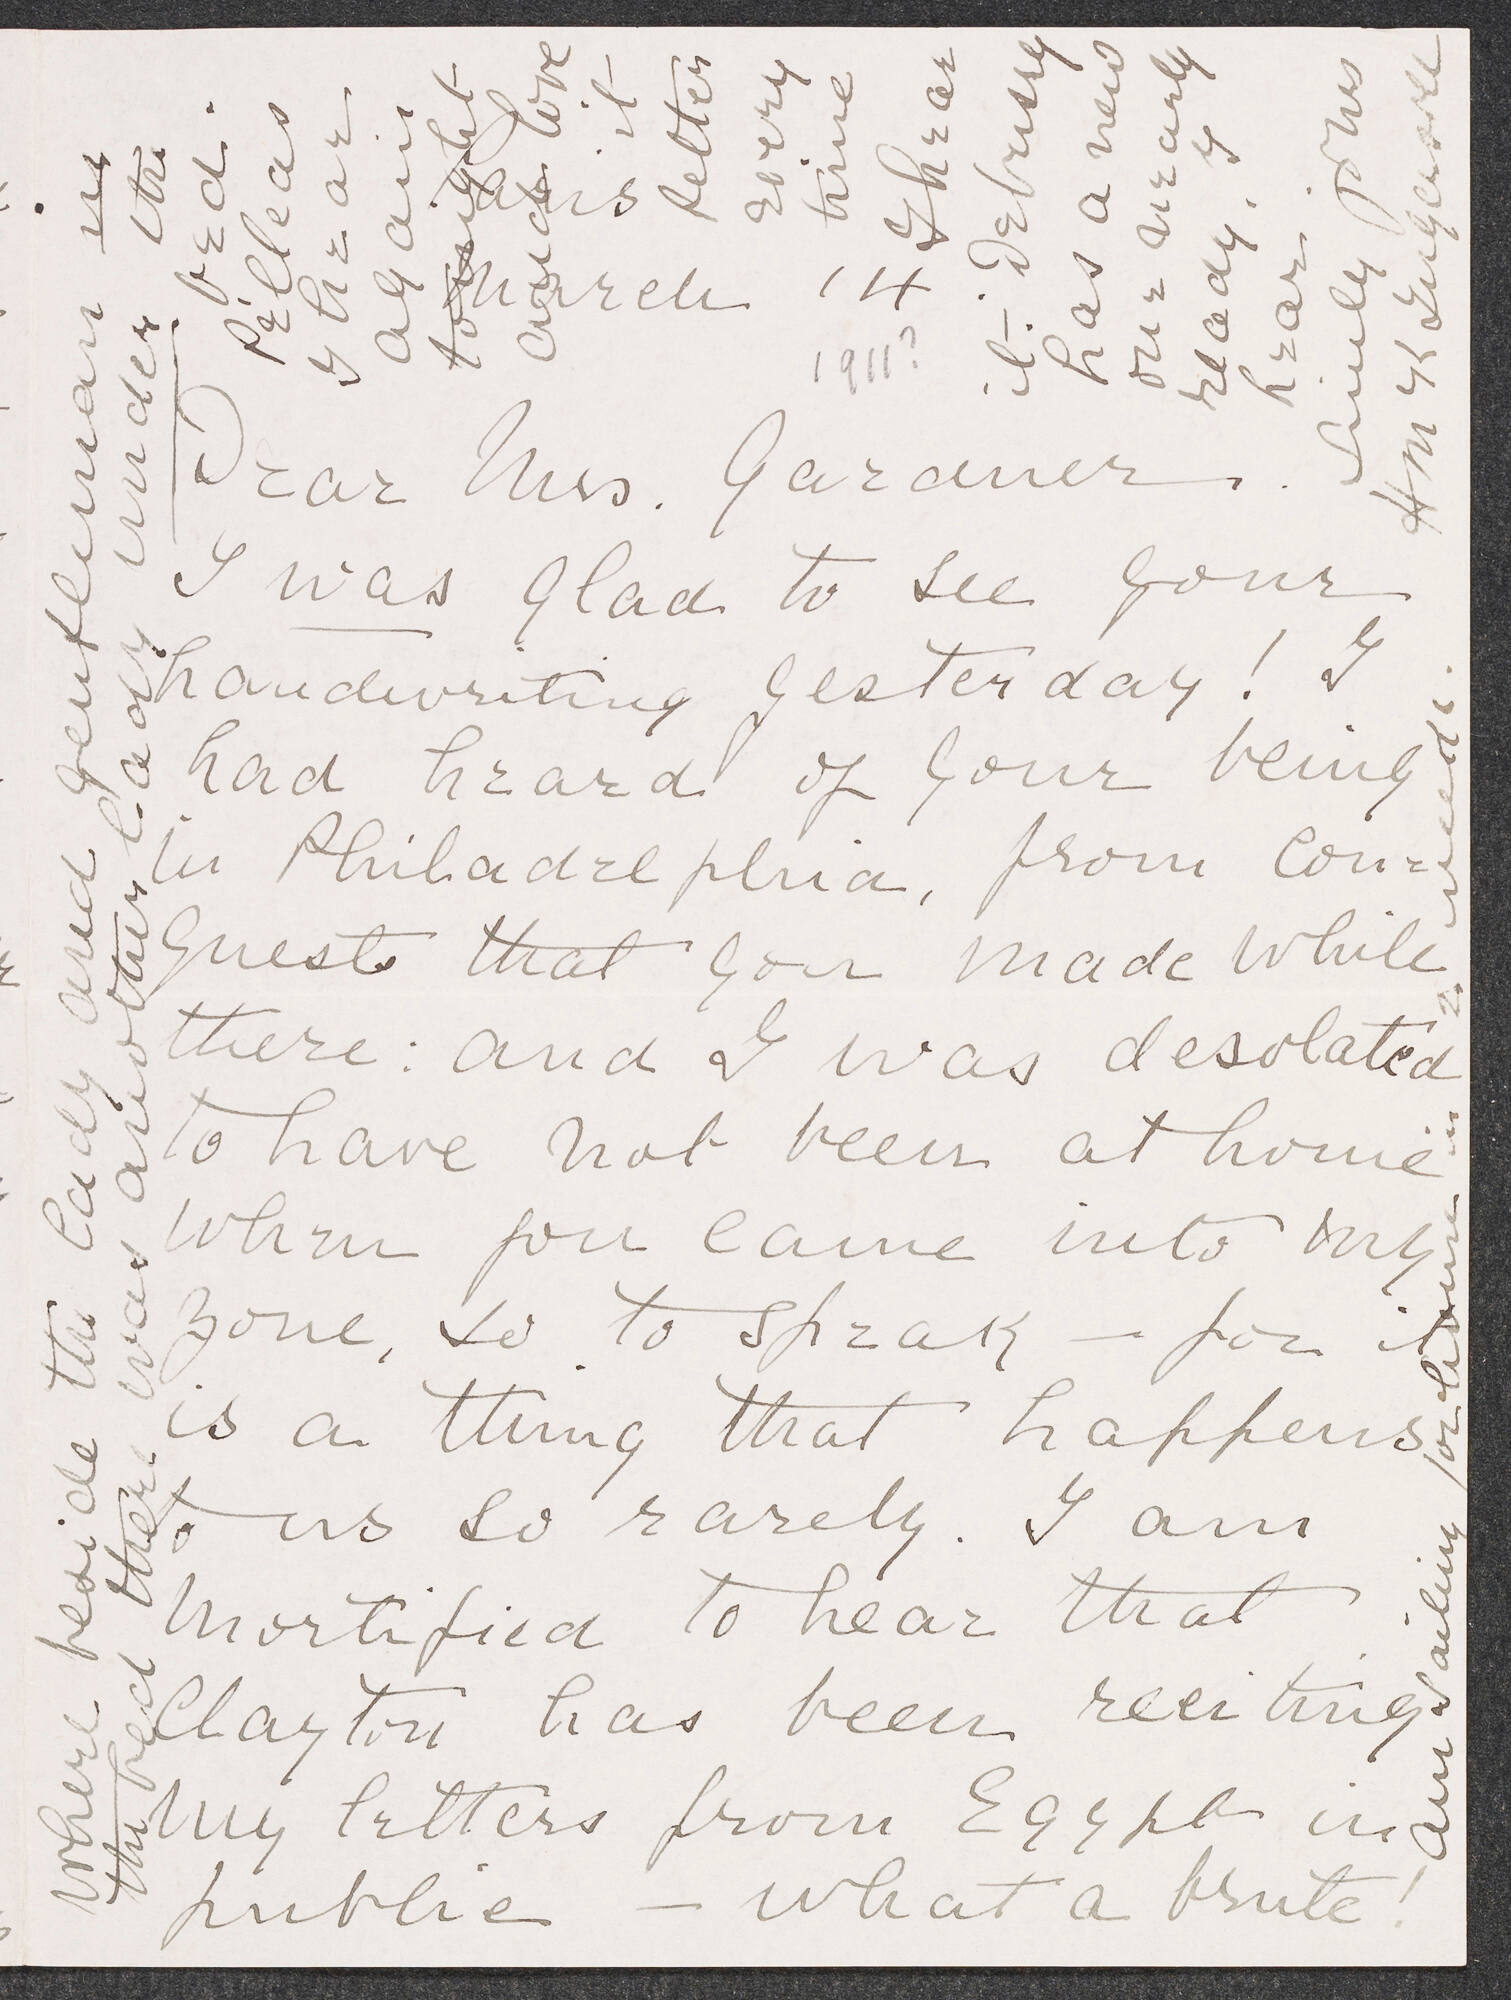 Paris
March 14
1911?
Dear Mrs. Gardner.
I was glad to see your
handwriting yesterday! I
had heard of your being
in Philadelphia, from con-
quests that you made while
there: and I was desolated
to have not been at home
when you came into my
zone, so to speak — for it
is a thing that happens
to us so rarely. I am
mortified to hear that
Clayton has been reciting
my letters from Egypt in
public — what a brute!
where beside the lady and gentleman in
the bed there was another lady under the
bed.
Pelleas
I hear
again
tonight
and love
it
better
every
time
I hear
it. Debussy
has a new
one nearly
ready, I
hear.
yrs
H M K
am sailing for home in 2 weeks.